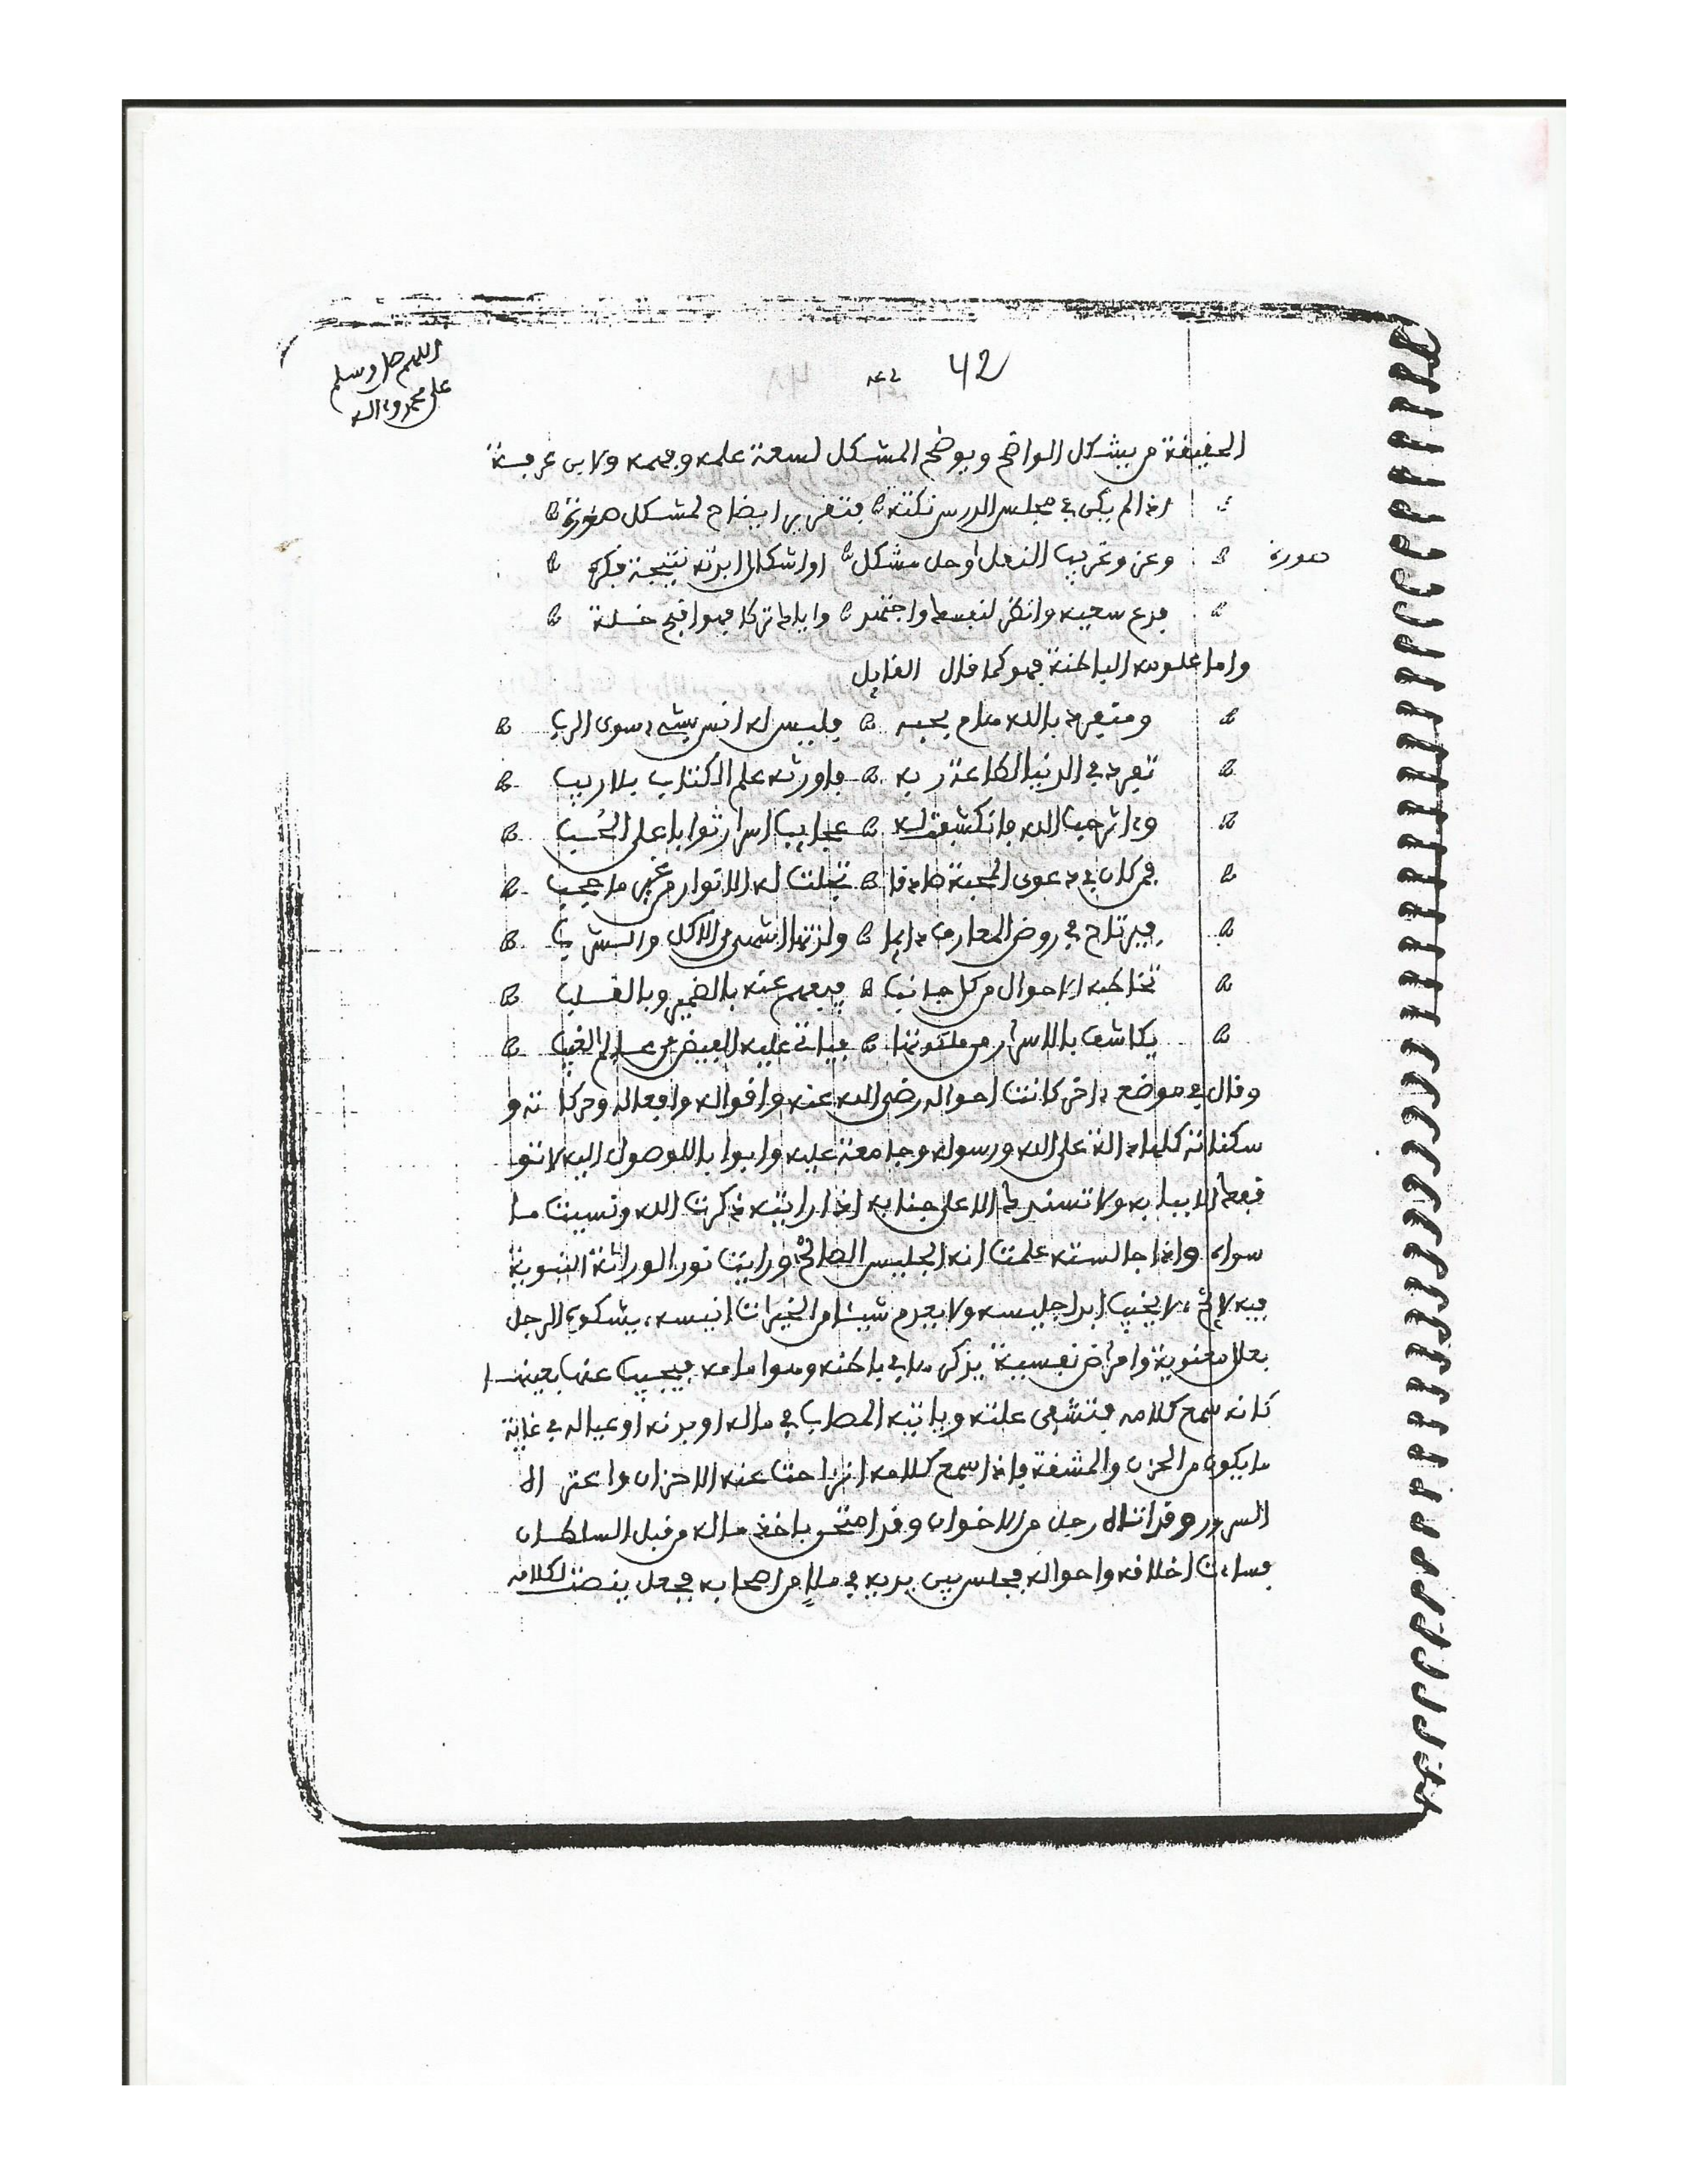 اللهم صل وسلم
على محمد وءاله
42 ٤٢
الحقيقة من يشكل الواضح ويوضح المشكل لسعة علمه وفهمه ولابن عرفة
اذا لم يكن في مجلس الدرس نكتة بتقرير ايضاح لمشكل صورة
صورة
وعزو غريب النقل او حل مشكل او اشكال ابدته نتيجة فكرة
فدع سعيه وانظر لنفسك واجتهد واياك تركا فهو اقبح خلة
واما علومه الباطنة فهو كما قال القايل
ومنفرد بالله هام بحبه فليس له انس بشيء سوى الرب
تفرد في الدنيا لطاعة ربه فاورثه علم الكتاب بلا ريب
وءاثر حب الله فانكشفت له عجايب اسرار ثوابا على الحُب
فمن كان في دعوى المحبة صادقا تجلت له الانوار من غير ما حجب
فيرتاح في روض المعارف دايما ولذتها اشهى من الاكل والشرب
تخاطبه الاحوال من كل جانب فيفهم عنه بالضمير وبالقلب
يكاشف بالاسرار من ملكوتها فياتي عليه الفيض من عالم الغيب
وقال في موضع ءاخر كانت احواله رضي الله عنه واقواله وافعاله وحركاته و
سكناته كلها دالة على الله ورسوله وجامعة عليه وابوابا للوصول اليه لا تو
قفك الا ببابه ولا تسندك الا على جنابه اذا رايته ذكرت الله ونسيت ما
سواه واذا جالسته علمت انه الجليس الصالح ورايت نور الوراثة النبوية
فيه لايح، لا يخيب ابدا جليسه ولا يعدم شيئا من الخيرات انيسه، يشكو الرجل
بعلل معنوية وامراض نفسية يذكر ما في باطنه وهو امامه فيجيب عنها بعينها
كانه سمع كلامه فتشفى علته وياتيه المصاب في ماله او بدنه او عياله في غاية
ما يكون من الحزن والمشقة فاذا سمع كلامه انزاحت عنه الاحزان واعتراه
السرور وقد اتاه رجل من الاخوان وقد امتحن باخذ ماله من قبل السلطان
فساءت اخلاقه واحواله فجلس بين يديه في ملإ من اصحابه فجعل ينصت لكلامه